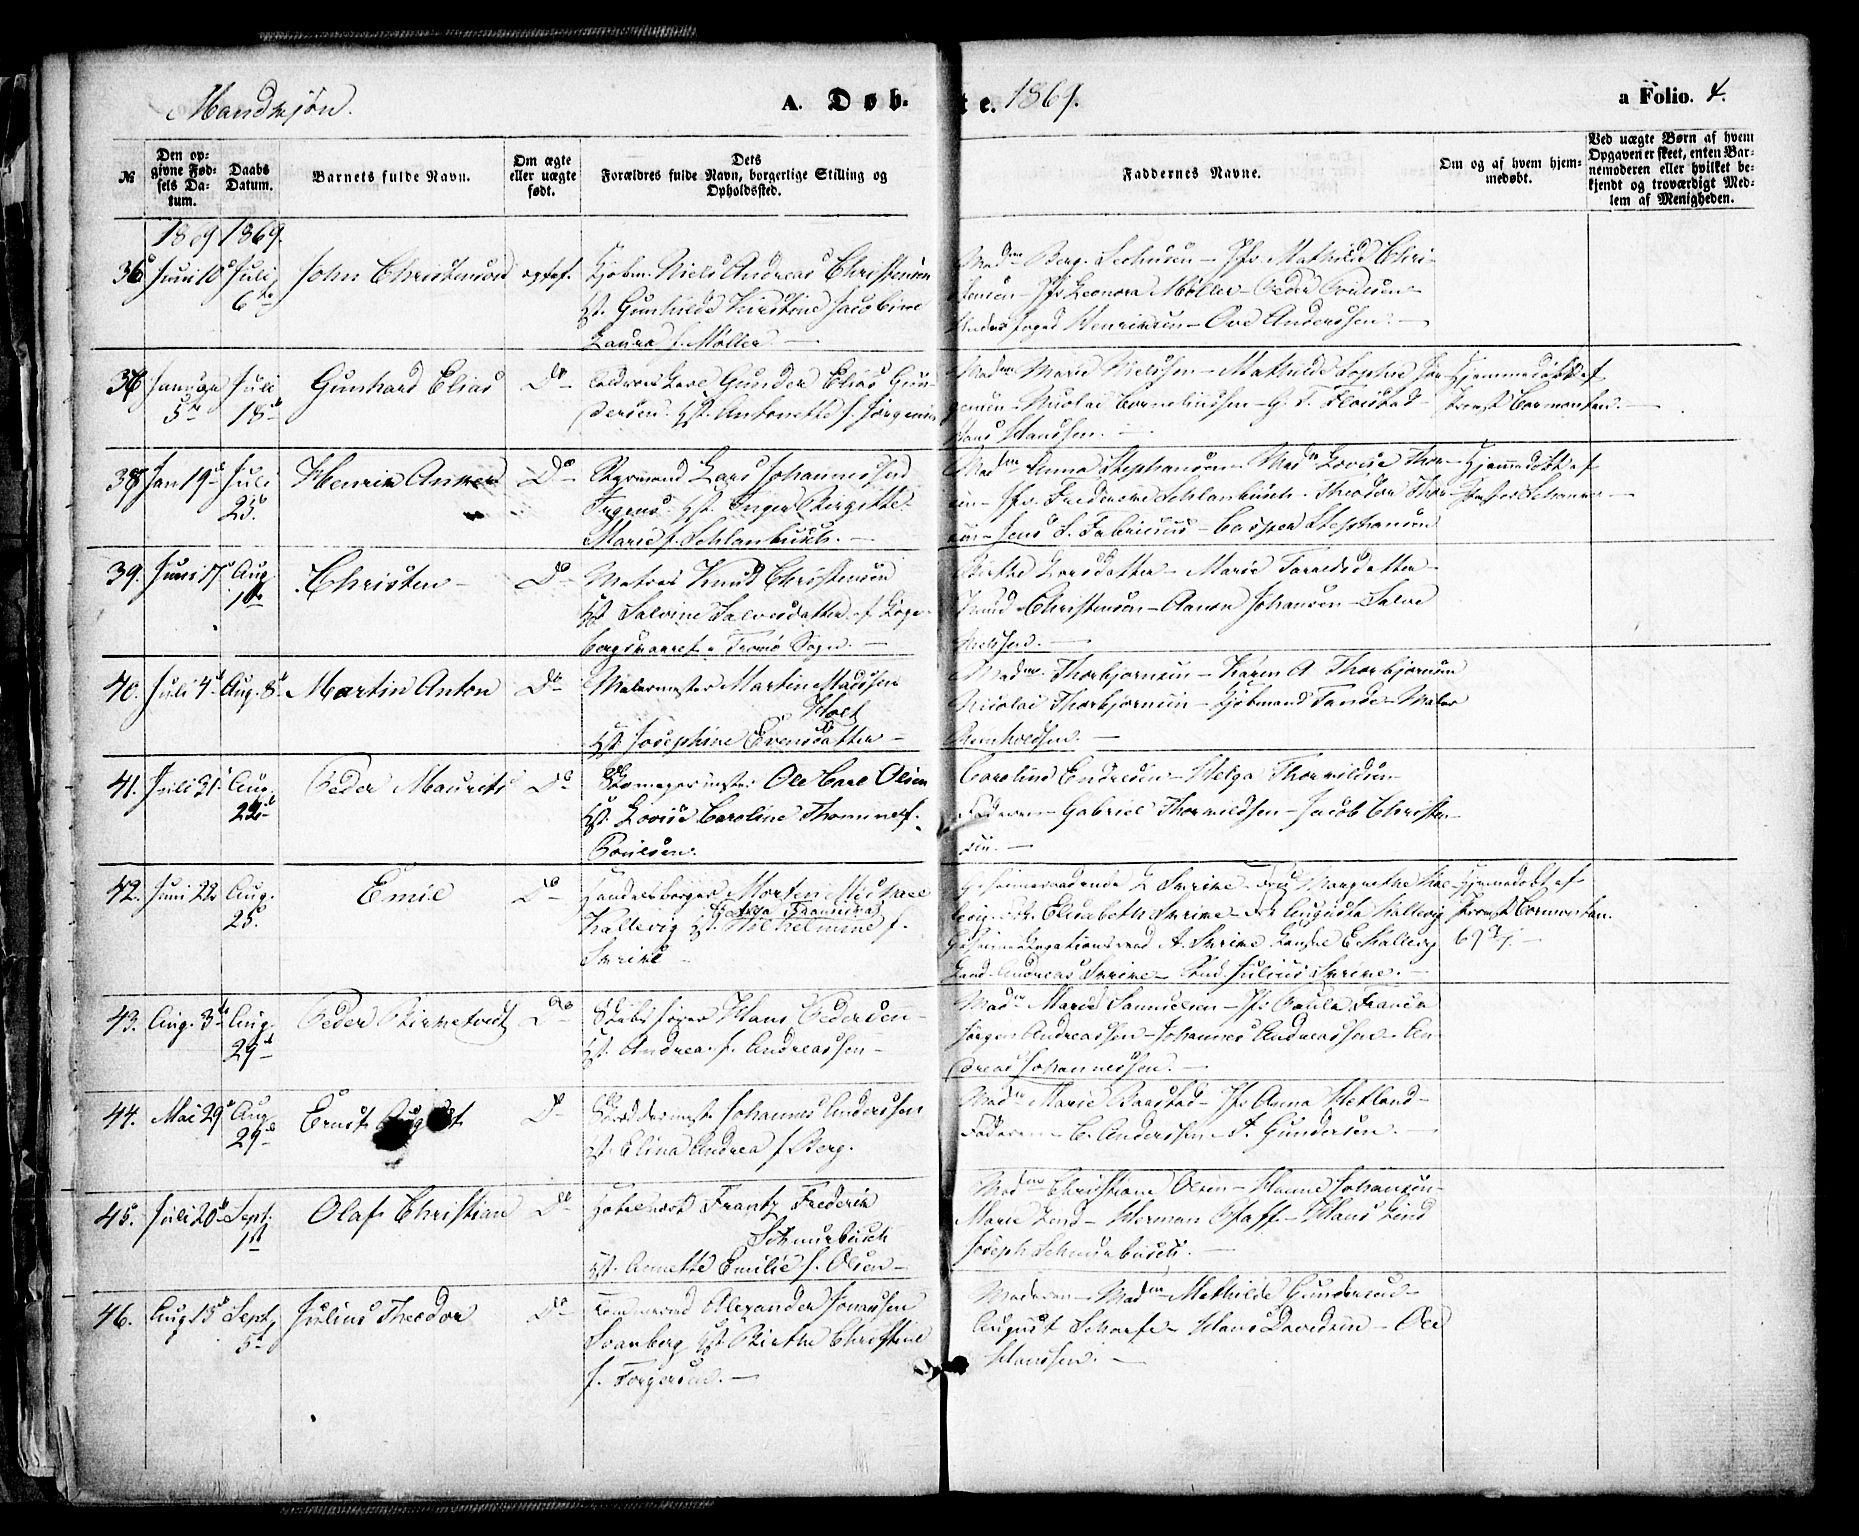 Mandkjøn.
A. Døb-
te. 1869.
a Folio. 4.
№
Den op-
givne Fød-
sels Da-
tum.
Daabs
Datum.
Barnets fulde Navn.
Om ægte
eller uægte
født.
Dets
Forældres fulde Navn, borgerlige Stilling og
Opholdssted.
Faddernes Navne.
Om og af hvem hjem-
medøbt.
Ved uægte Børn af hvem
Opgaven er skeet, enten Bar-
nemoderen eller hvilket be-
kjendt og troværdigt Med-
lem af Menigheden.
1869 1869.
36 Juni 10 Juli 6te John Christenson ægtef. Kjøbm. Niels Andreas Christensen
H. Gunhilde Kirstine Jacobine
Laura f. Møller
Mad. Berg. Seehusen - Jfr Mathilde Chri-
stensen - Jfr Leonora Møller - Peder Poulsen
Henriksen - Ove Anderssen.
Januar 5te Juli 18de Gunhard Elias Do Gunder Elias Gun-
dersen. H. Antonette f. Jørgensen
Madm Marie Nielsen - Mathilde Sophie Jør-
gensen - Nicolai Corneliussen - G. T. Flostad
Hans Hansen.
Hjemmedøbt af
Provst Cormontan.
38 Jan 19de Juli 25. Henrik Do Lars Johannessen
H. Inger Birgitte
Marie f. Schlanbusch.
Madm Anna Stephansen - Madm Lovise Thor-
sen - Jfr. Frederikke Schlanbusch - Theodor Thor-
sen - Jens S. Fabricius - Casper Stephansen
Hjemmedøbt af
39. Juni 17 Aug. 1ste Christen Do Matros Knud Christensen
H. Salvine Salvesdatter af Løge-
bergskaaret Tromø Sogn.
Birthe Larsdatter - Marie Tarredsdatter
Knud Christensen - Aanon Johansen - Salve
Nielsen.
40. Juli 4de Aug. 8de Martin Anton Do Malermester Martin Madssen
Holt
H. Josephine Evensdatter
Madm. Thorbjørnsen - Karen A Thorbjørnsen
Nicolai Thorbjørnsen - Kjøbmand Tande - Maler
Reinholdsen.
41. Juli 21 Aug. 22de Peder Maurits Do Skomagermester Ole Carl Olsen
H. Lovise Caroline Thomine f.
Poulsen.
Caroline Endresen - Helga Thorvildsen
Faderen - Gabriel Thorvildsen - Jacob Christen-
sen.
42. Juni 22 Aug. 25. Emil Do Handelsborger Morten Michael
Kallevig H. Anga Fransiska
Wilhelmine f.
Smith
Geheimeraadinde L Smith - Frk Margrethe Kal-
levig - Frk. Elisabeth Smith - Frk Augusta Kallevig
Geheimelegationsraad A. Smith E Kallevig
Cand. Andreas Smith - Stud. Julius Smith.
Hjemmedøbt af
Provst Cormontan.
43. Aug. 3de Aug. 29de Peder Birketvedt Do Hans Pedersen
H. Andrea f. Andreassen
Madm Marie Samuelsen - Jfr Paula Franck
Jørgen Andreassen - Johannes Andreassen - An-
dreas Johannessen.
44. Mai 29de Aug. 29de Ernst August Do Johannes Anderssen
H. Elina Andrea f. Berg.
Madm Marie Baastad - Jfr Anna Hetland
Faderen - C. Anderssen - T. Gundersen.
45. Juli 20de Sept. 1ste Olaf Christian Do Hotelvært Frantz Frederik
Schnurbusch
H. Annette Emilie f. Olsen
Madm Christiane Olsen - Hanne Johansen
Marie Lind - Herman Pfaff - Hans Lind
Joseph Schnurbusch.
46. Aug 13de Sept. 5te Julius Theodor Do Tømmermd Alexander Jonassen
Svanberg H. Birthe Christine
f. Torgersen.
Moderen - Madm Mathilde Gundersen
August Scharff - Hans Davidsen - Ole
Hansen.